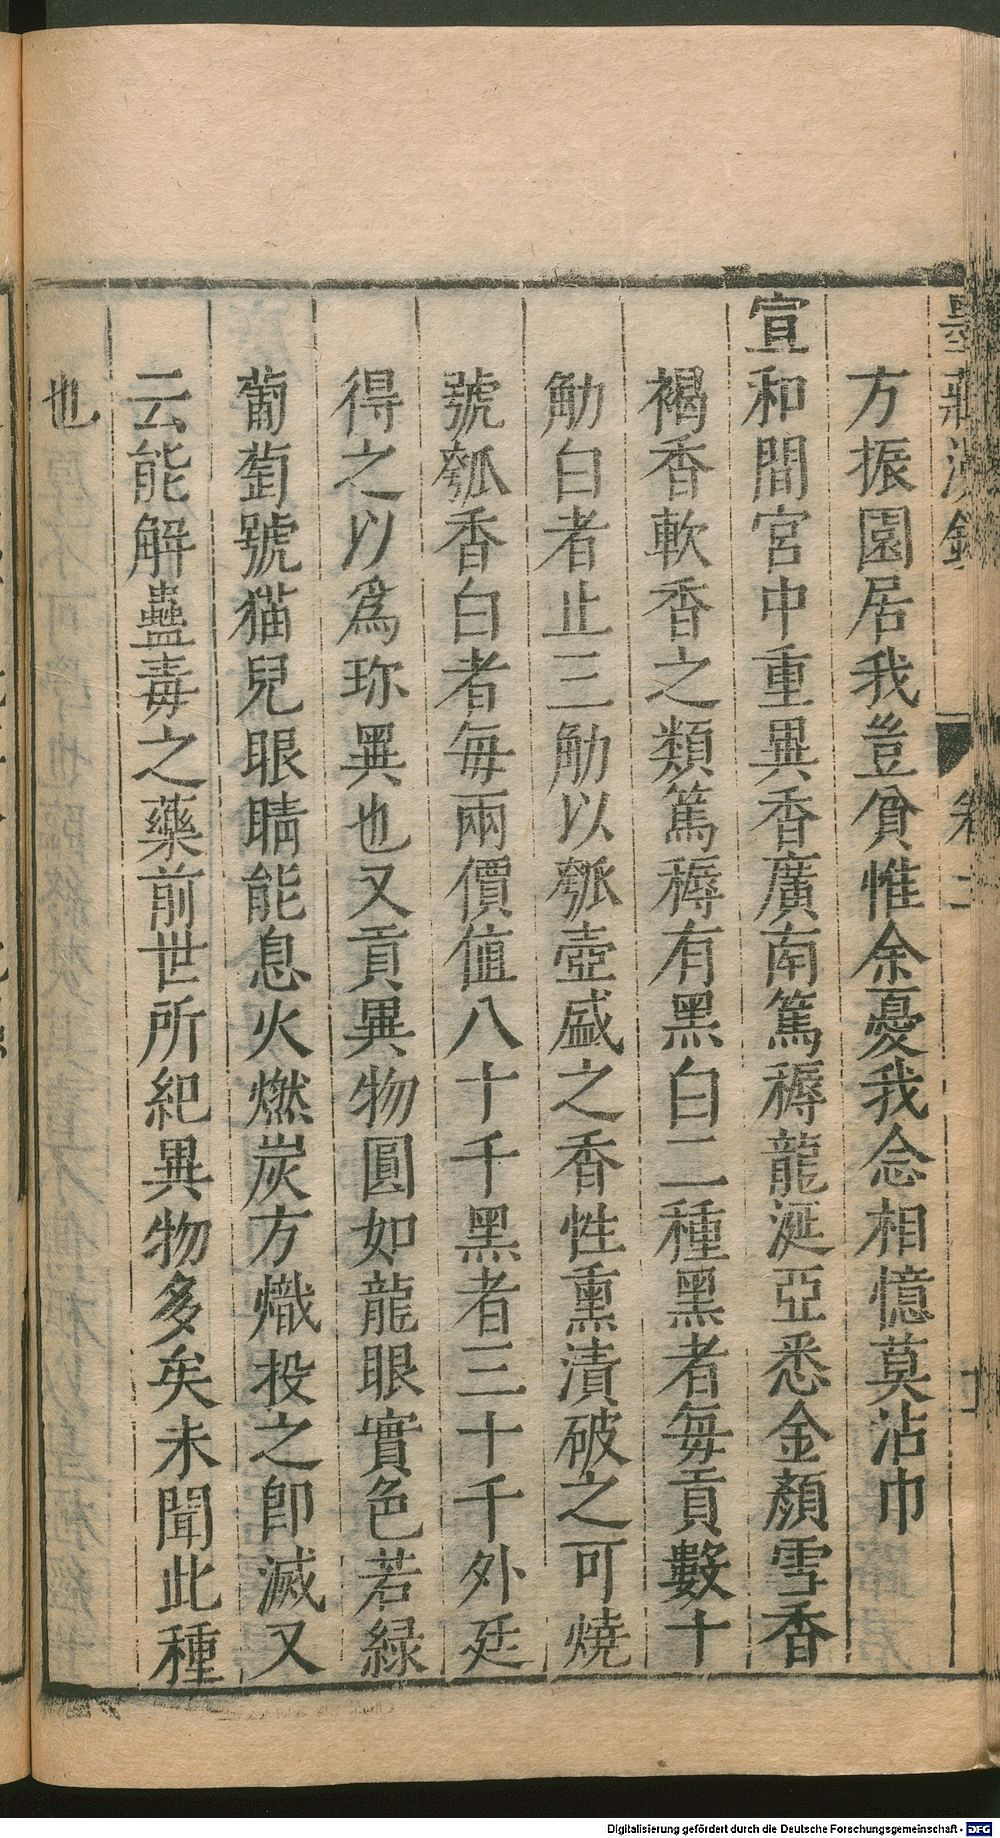 方振園居我豈貧惟余憂我念相憶莫沾巾
宣和間宮中重異香廣南篤耨龍涎亞悉金顏雪香
褐香軟香之類篤耨有黑白二種黑者每貢數十
觔白者止三觔以瓠壺盛之香性熏漬破之可燒
號瓠香白者每兩價值八十千黑者三十千外廷
得之以爲珎異也又貢異物圓如龍眼實色若綠
葡萄號猫兒眼睛能息火燃炭方熾投之卽滅又
云能解蠱毒之藥前世所紀異物多矣未聞此種
也
Digitalisierung gefördert durch die Deutsche Forschungsgemeinschaft - DFG